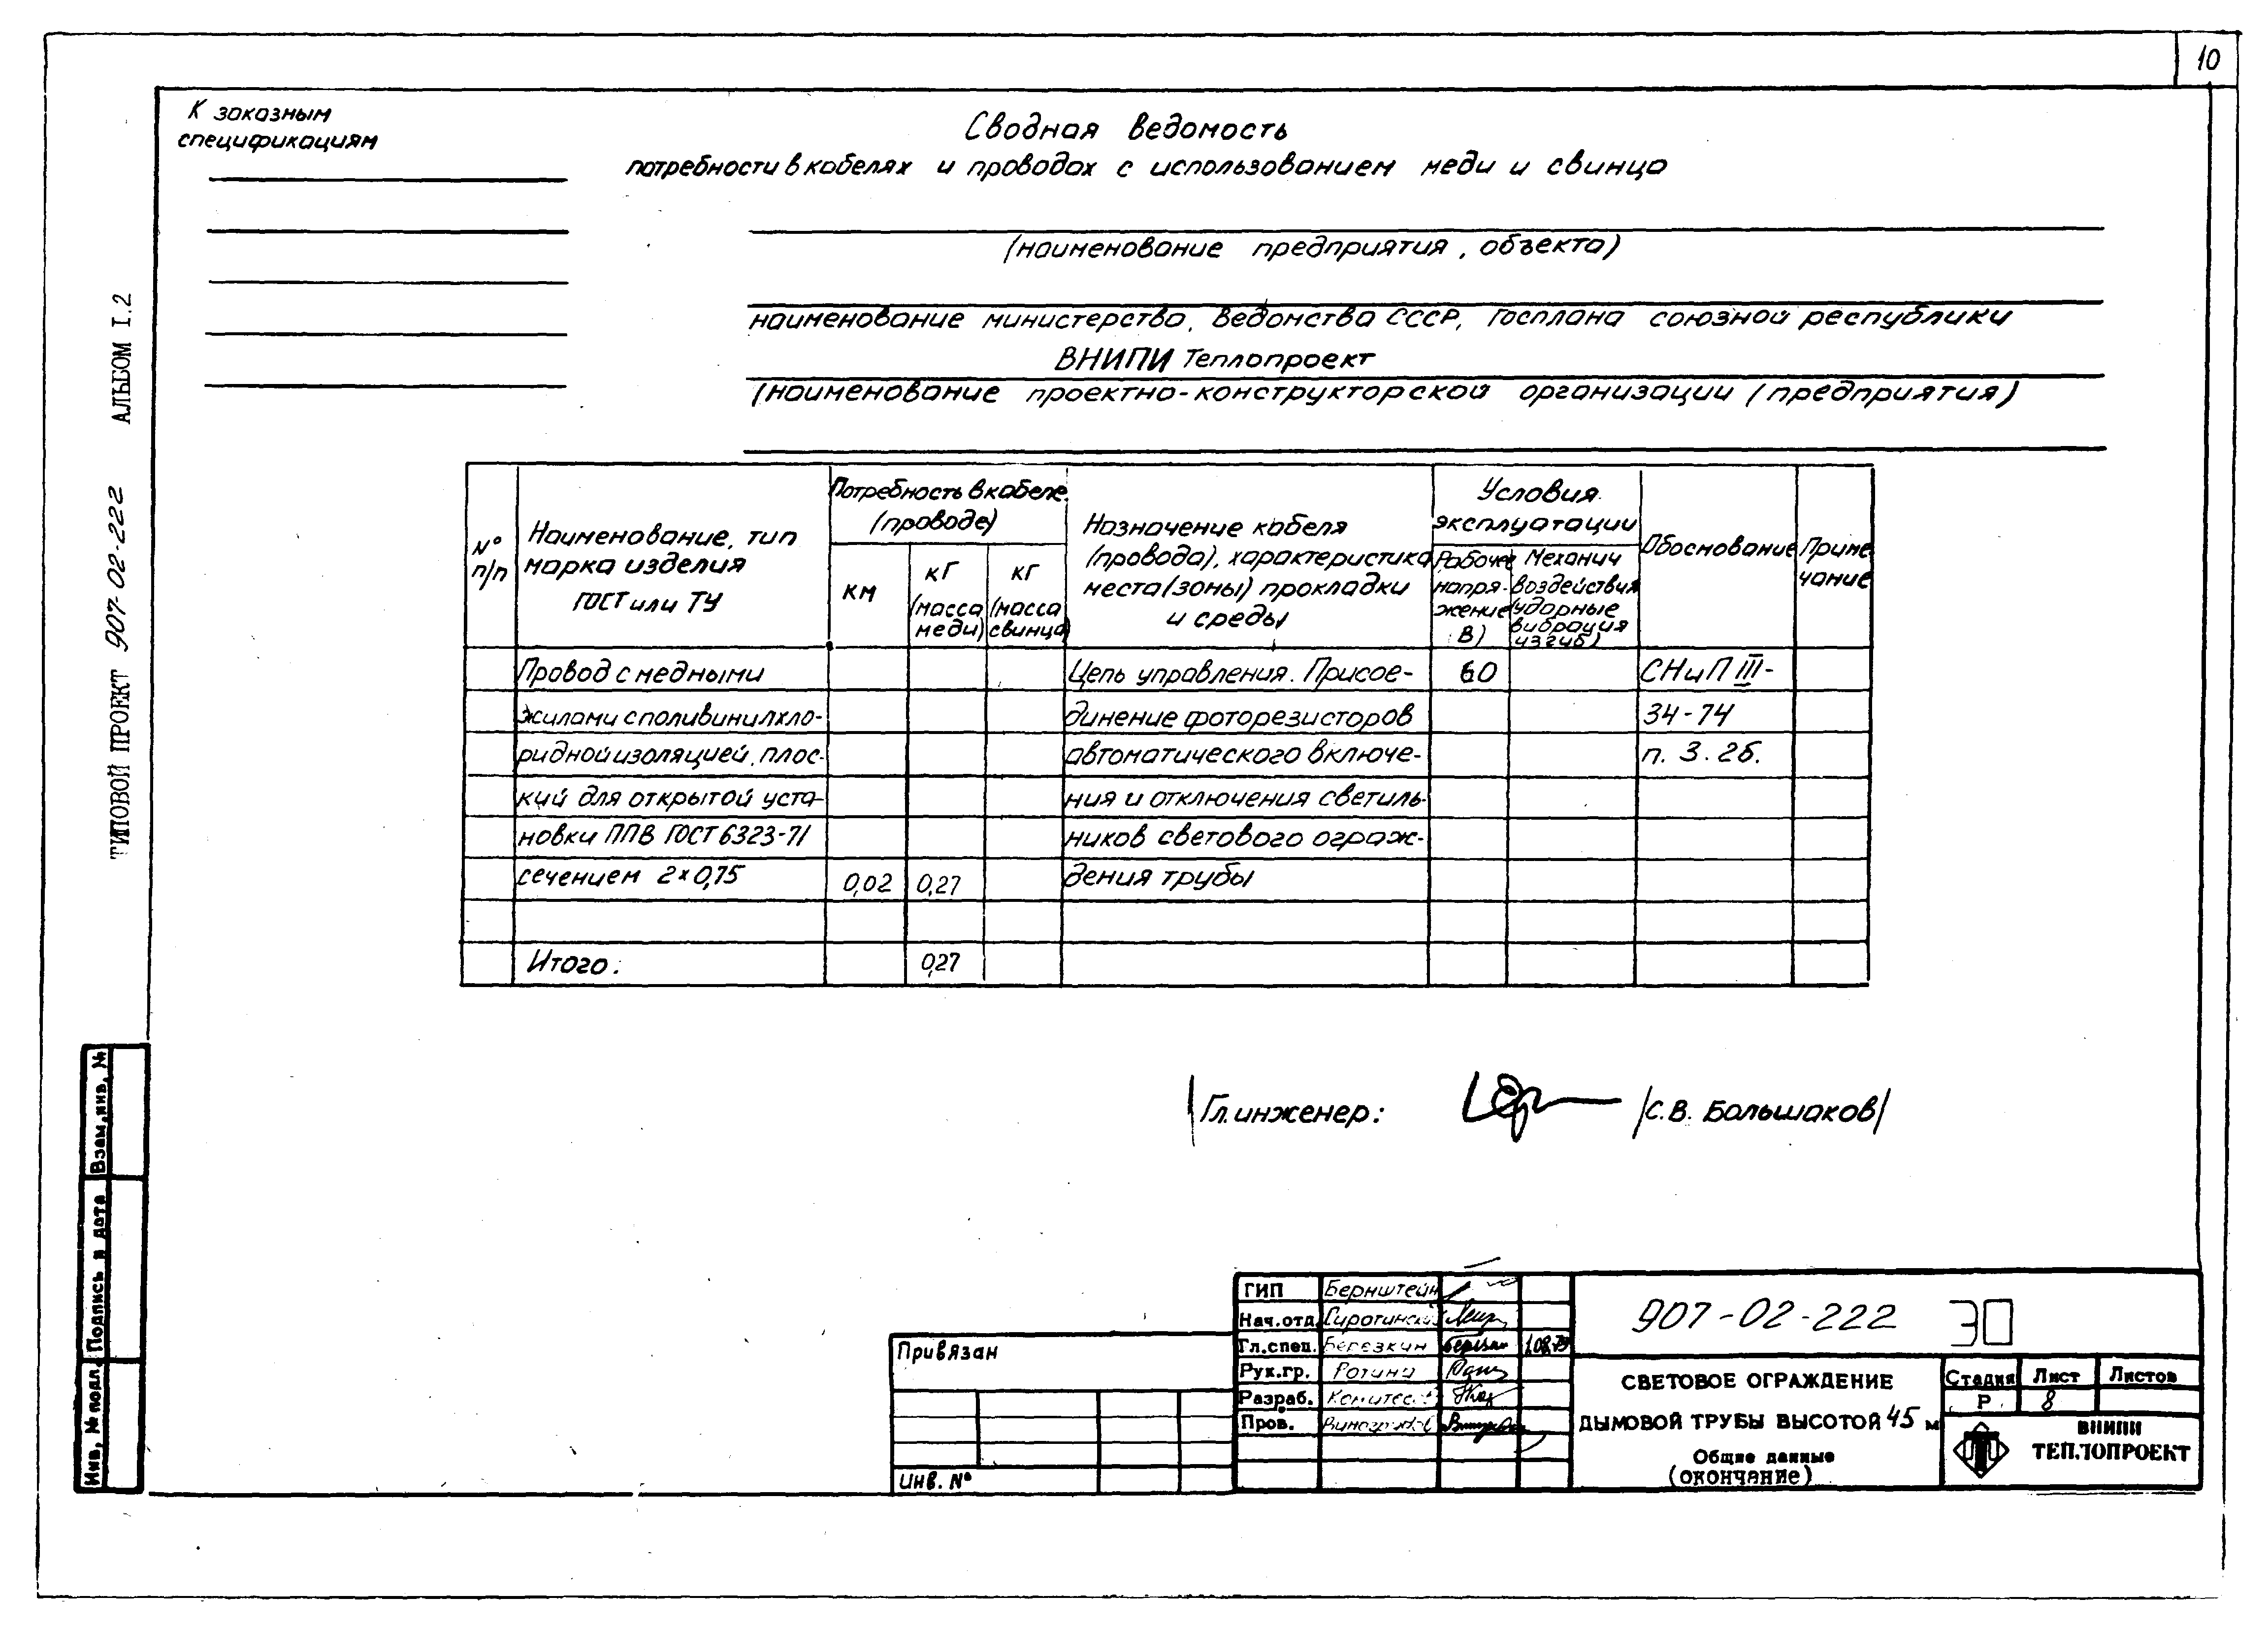 10
К заказным
спецификациям
Сводная ведомость
потребности в кабелях и проводах с использованием меди и свинца
(наименование предприятия, объекта)
наименование министерства, ведомства СССР, Госплана союзной республики
ВНИПИ Теплопроект
(наименование проектно-конструкторской организации (предприятия)
ТИПОВОЙ ПРОЕКТ 907-02-222 АЛЬБОМ I.2
№ п/п
Наименование, тип
марка изделия
ГОСТ или ТУ
Потребность в кабеле
(проводе)
км
кг
(масса
меди)
кг
(масса
свинца)
Назначение кабеля
(провода), характеристика
места (зоны) прокладки
и среды
Условия
эксплуатации
Рабочее
напря-
жение
В)
Механич
воздействия
(ударные
вибрация
изгиб)
Обоснование
Приме
чание
Провод с медными Цепь управления. Присое- 60 СНиП III-
жилами с поливинилхло- динение фоторезисторов 34-74
ридной изоляцией, плос- автоматического включе- п. 3.26.
кий для открытой уста- ния и отключения светиль-
новки ППВ ГОСТ 6323-71 ников светового ограж-
сечением 2×0,75 0,02 0,27 дения трубы
Итого: 0,27
Гл. инженер: /С.В. Большаков/
Взам, инв. №
Подпись и дата
Инв, № подл.
Привязан
Инв. №
ГИП Бернштейн
Нач.отд.
Гл.спец. Березкин 1.08.79
Рук.гр. Ротина
Разраб.
Пров.
907-02-222 ЭО
СВЕТОВОЕ ОГРАЖДЕНИЕ
ДЫМОВОЙ ТРУБЫ ВЫСОТОЙ 45 м
Общие данные
(окончание)
Стадия Лист Листов
Р 8
ВНИПИ
ТЕПЛОПРОЕКТ